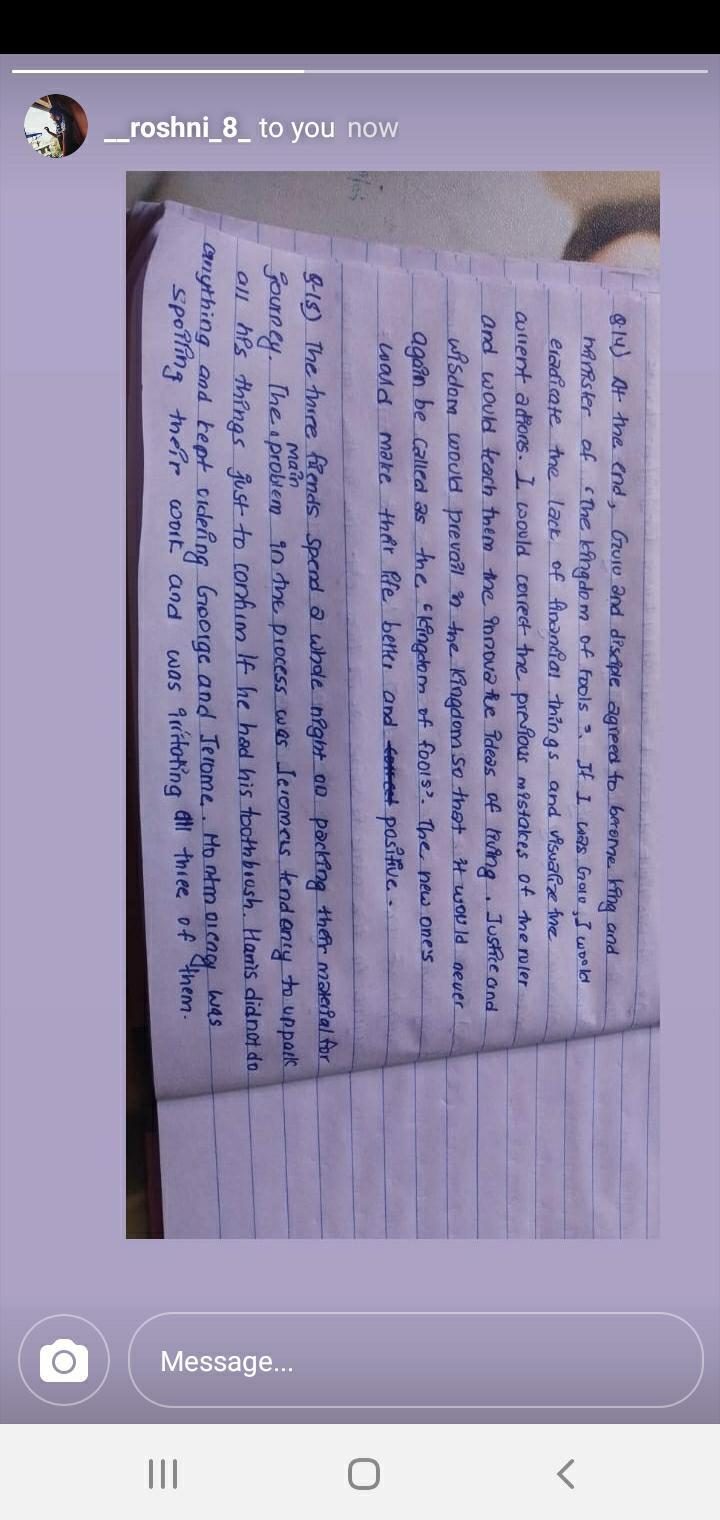 __roshni_8_ to you now
Q.14) At the end, Guru and disciple agreed to become king and
minister of "The kingdom of fools". If I was Guru, I would
eradicate the lack of financial things and visualize the
current actions. I would correct the previous mistakes of the ruler
and would teach them the innovative ideas of ruling. Justice and
wisdom would prevail in the kingdom so that it would never
again be called as the "kingdom of fools". The new ones
would make their life better and correct positive.
Q.15) The three friends spend a whole night on packing their material for
journey. The main problem in the process was Jeromes tendency to unpack
all his things just to confirm if he had his toothbrush. Harris did not do
anything and kept ordering George and Jerome. Montmorency was
spoiling their work and was irritating all three of them.
Message...